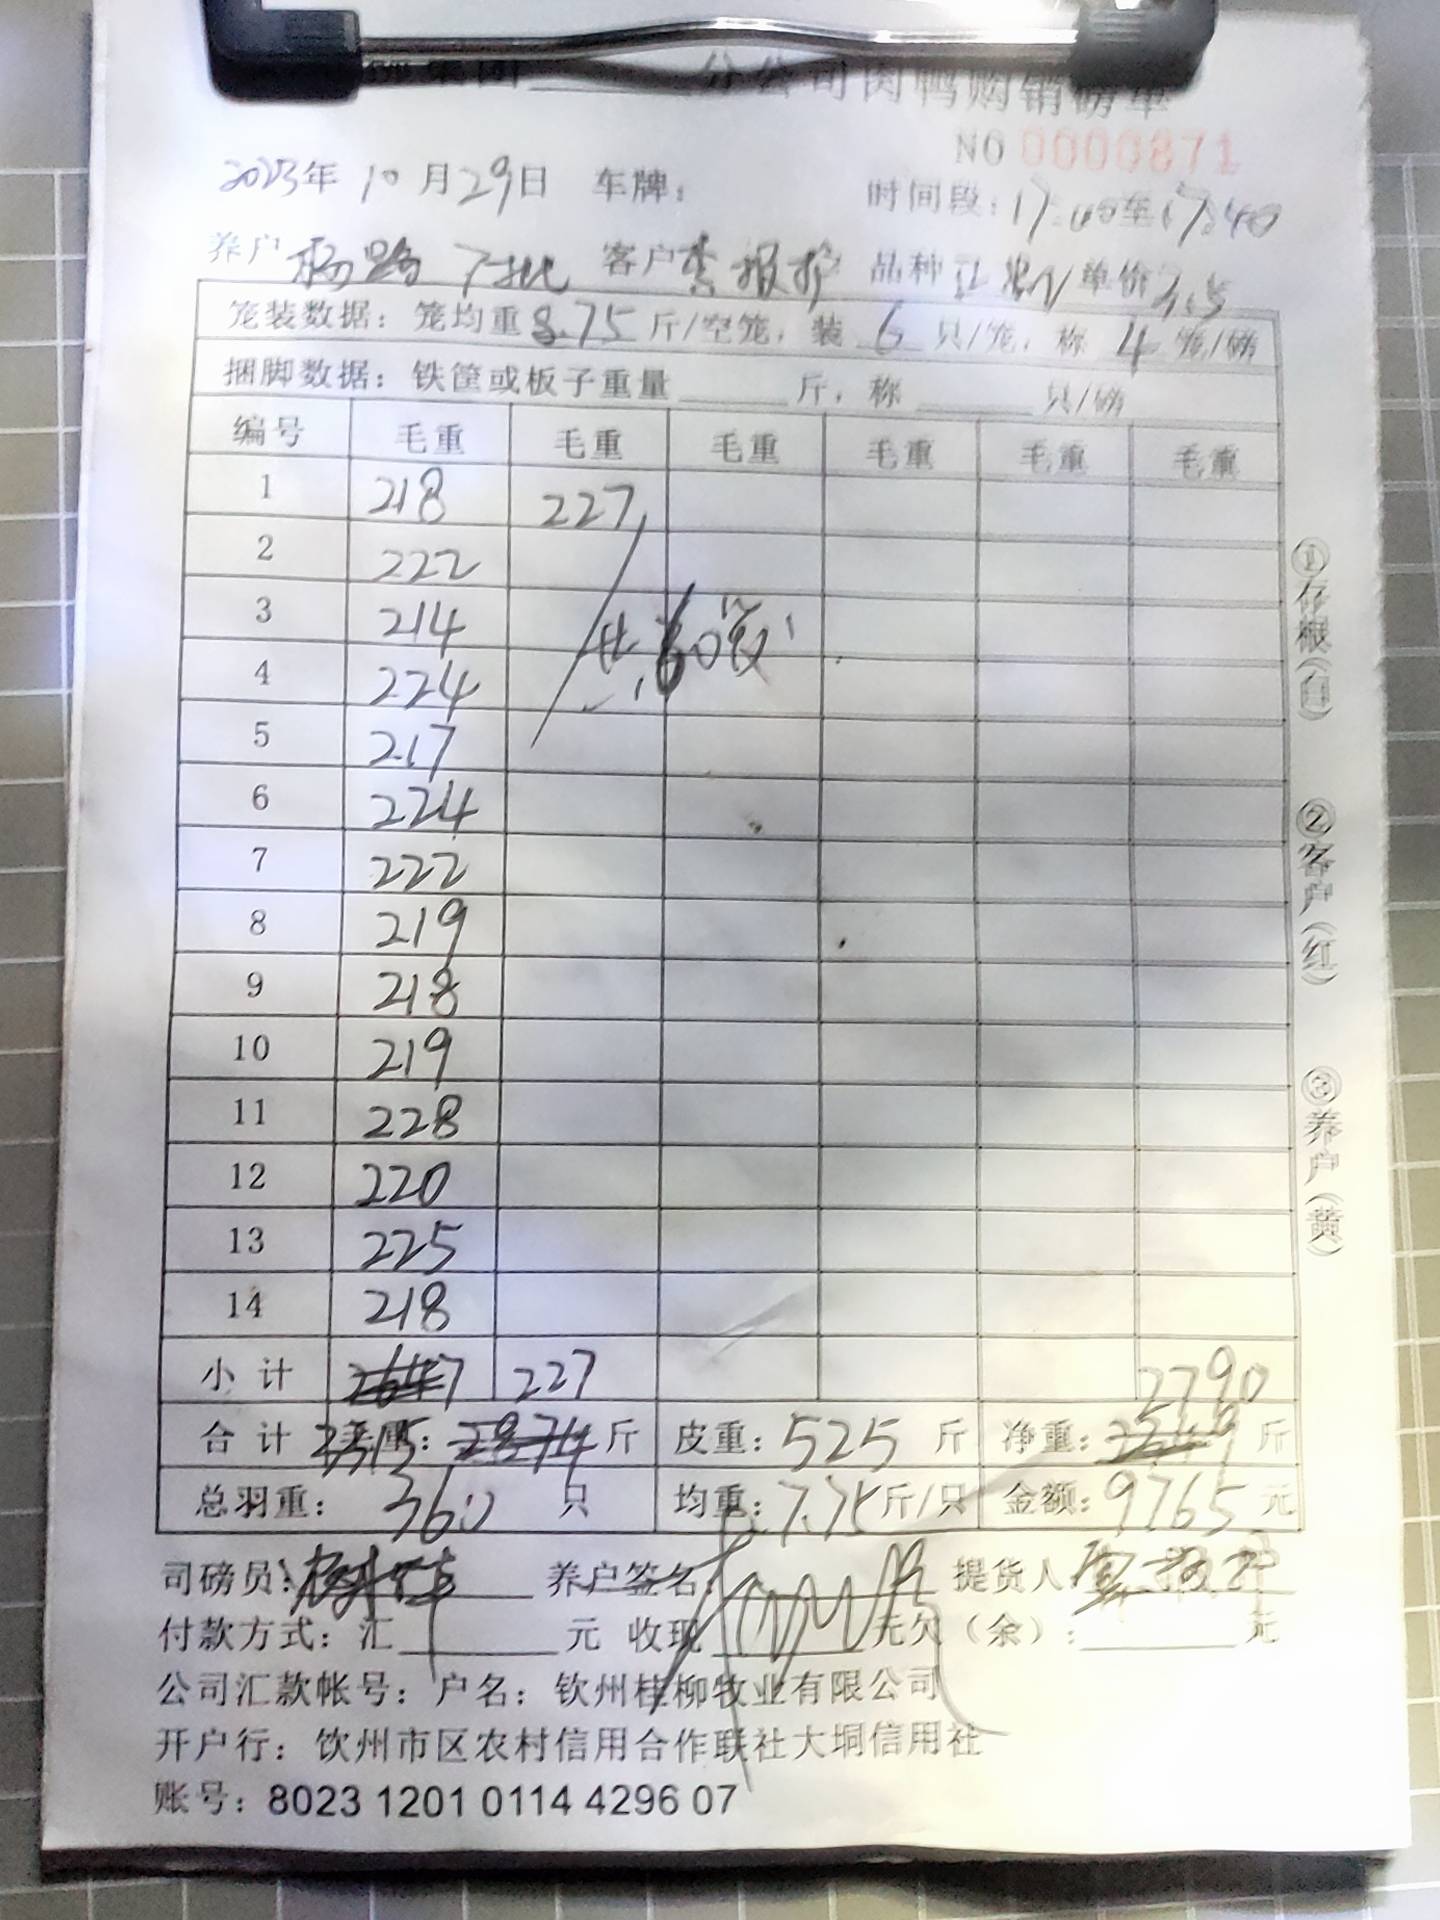 集团 分公司肉鸭购销磅单
NO 0000871
2023年 10月29日 车牌： 时间段：17:00至17:40
养户 杨 批 客户 李报护 品种 单价 3.5
笼装数据：笼均重 8.75 斤/空笼，装 6 只/笼，称 4 笼/磅
捆脚数据：铁筐或板子重量 斤，称 只/磅
编号 毛重 毛重 毛重 毛重 毛重 毛重
1 218 227
2 222
3 214 共60笼
4 224
5 217
6 224
7 222
8 219
9 218
10 219
11 228
12 220
13 225
14 218
小计 227 2790
合计 毛重：3315 斤 皮重：525 斤 净重： 斤
总羽重：360 只 均重：7.75 斤/只 金额：9765 元
司磅员： 养户签名： 提货人：
付款方式：汇 元 收现 元欠（余）： 元
公司汇款帐号：户名：钦州桂柳牧业有限公司
开户行：饮州市区农村信用合作联社大垌信用社
账号：8023 1201 0114 4296 07
①存根（白）
②客户（红）
③养户（黄）